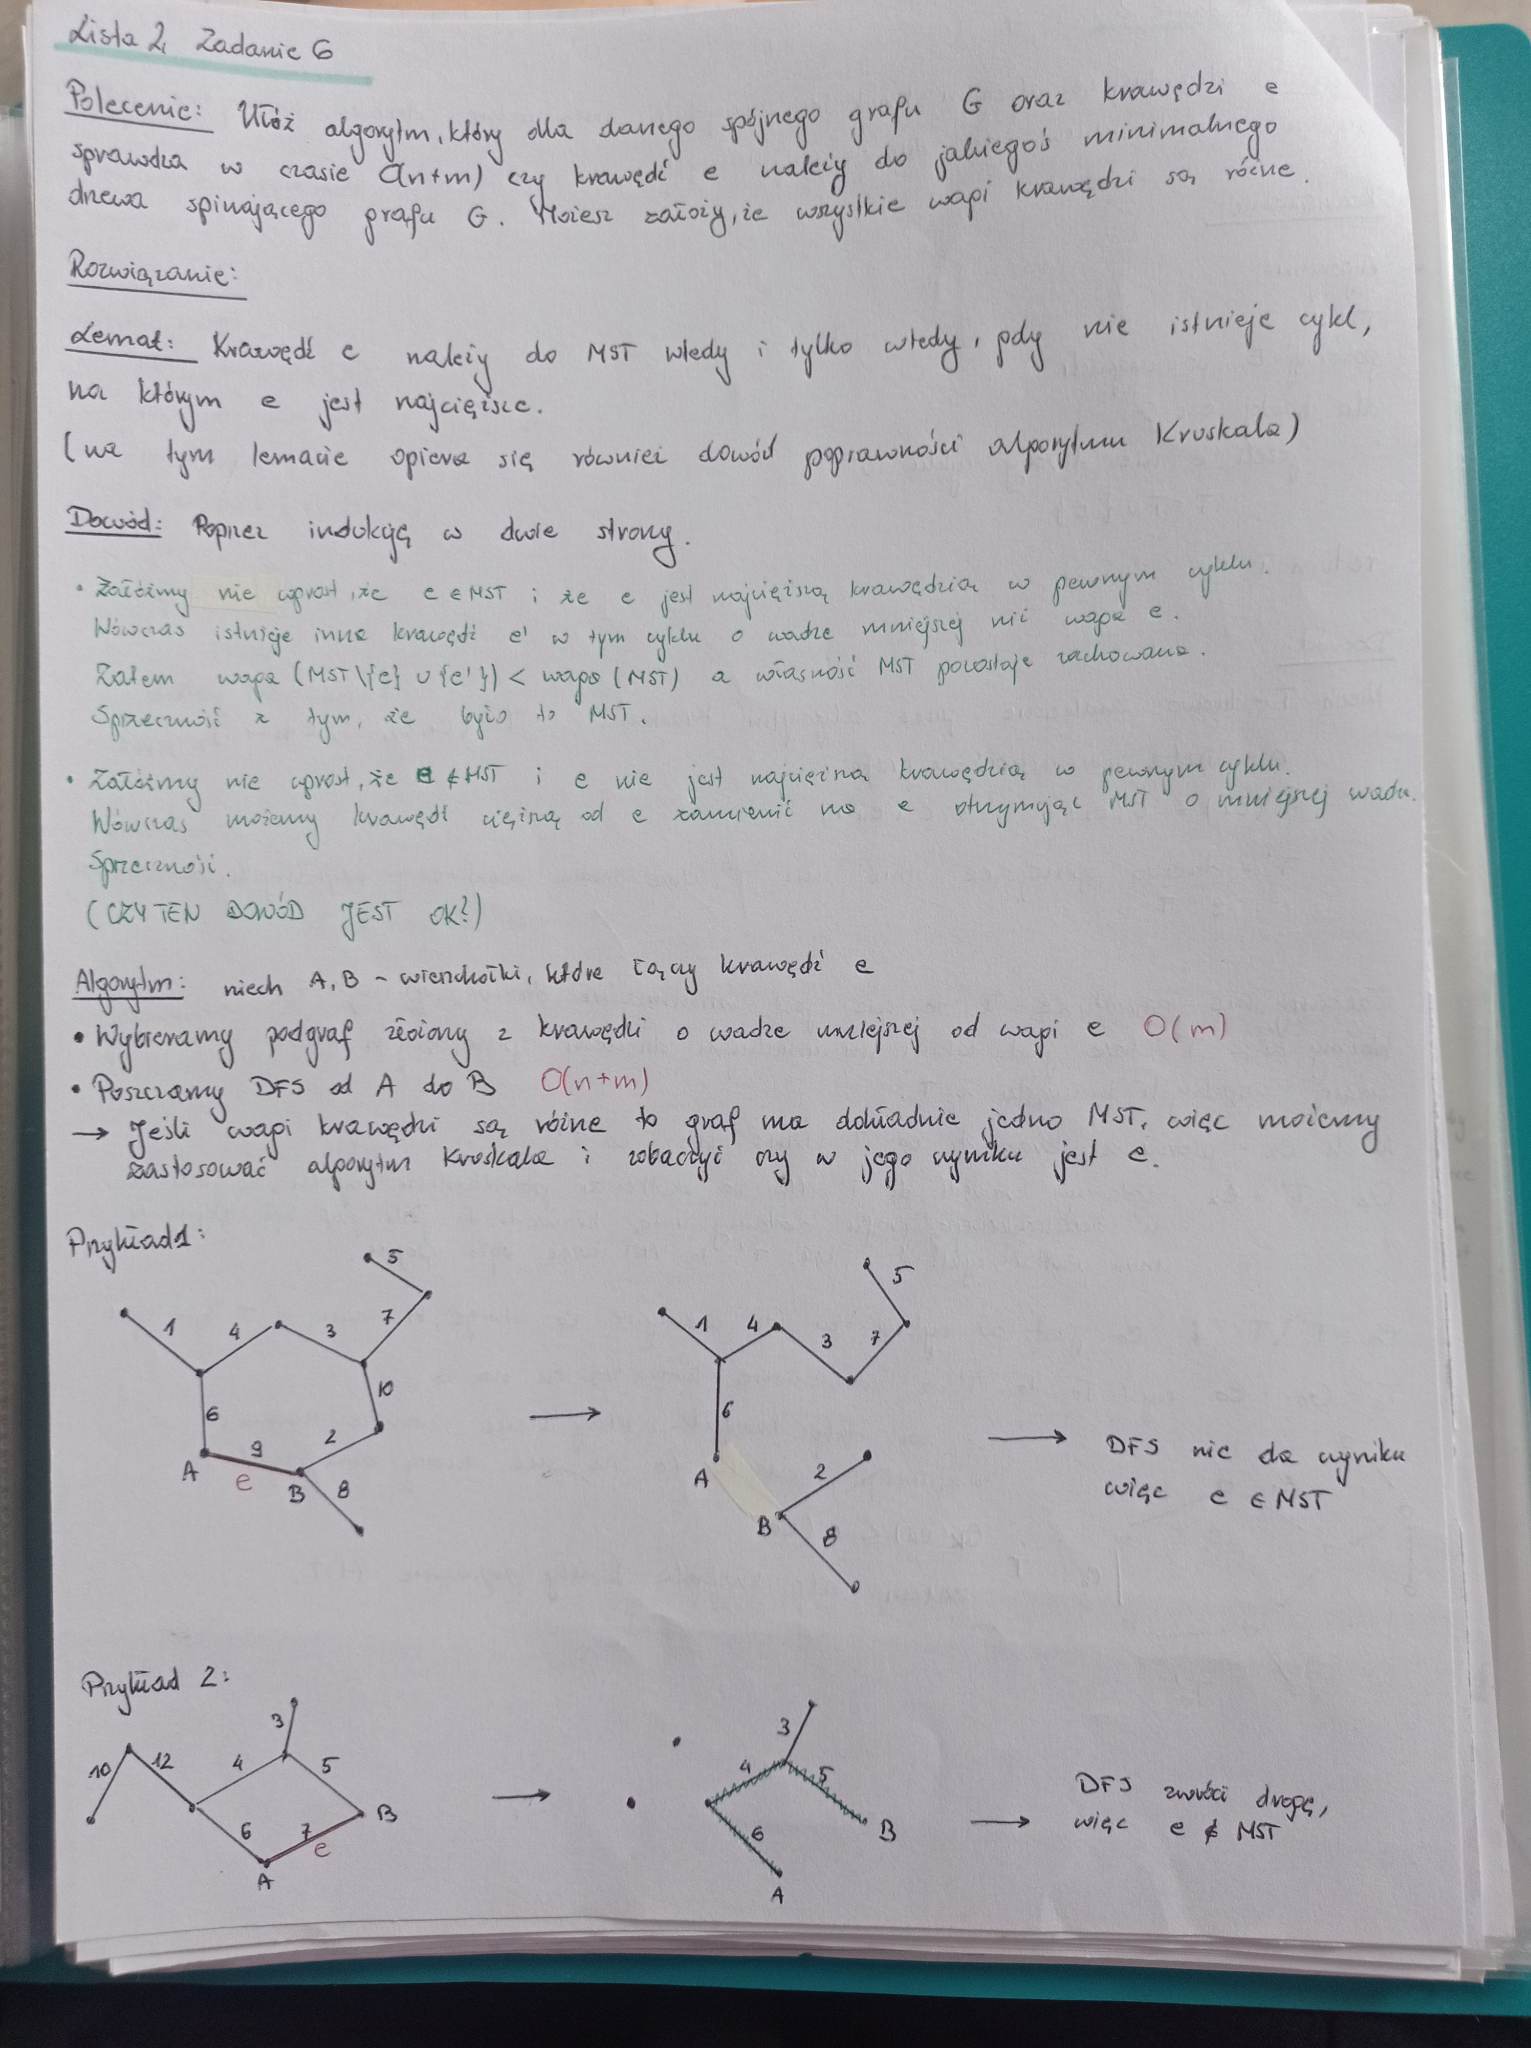 Lista 2, Zadanie 6
Polecenie: Ułóż algorytm, który dla danego spójnego grafu G oraz krawędzi e
sprawdza w czasie O(n+m) czy krawędź e należy do jakiegoś minimalnego
drzewa spinającego grafu G. Możesz założyć, że wszystkie wagi krawędzi są różne.
Rozwiązanie:
Lemat: Krawędź e należy do MST wtedy i tylko wtedy, gdy nie istnieje cykl,
na którym e jest najcięższe.
(na tym lemacie opiera się również dowód poprawności algorytmu Kruskala)
Dowód: Poprzez indukcję w dwie strony.
• Załóżmy nie wprost, że e ∈ MST i że e jest najcięższą krawędzią w pewnym cyklu.
Wówczas istnieje inna krawędź e' w tym cyklu o wadze mniejszej niż waga e.
Zatem waga (MST\{e} ∪ {e'}) < waga (MST) a własność MST pozostaje zachowana.
Sprzeczność z tym, że było to MST.
• Załóżmy nie wprost, że e ∉ MST i e nie jest najcięższą krawędzią w pewnym cyklu.
Wówczas możemy krawędź cięższą od e zamienić na e otrzymując MST o mniejszej wadze.
Sprzeczność.
(CZY TEN DOWÓD JEST OK?)
Algorytm: niech A, B - wierzchołki, które łączy krawędź e
• Wybieramy podgraf złożony z krawędzi o wadze mniejszej od wagi e O(m)
• Puszczamy DFS od A do B O(n+m)
→ Jeśli wagi krawędzi są różne to graf ma dokładnie jedno MST, więc możemy
zastosować algorytm Kruskala i zobaczyć czy w jego wyniku jest e.
Przykład 1:
5
1 4 3 7
10
6
9 2
A e B 8
5
1 4 3 7
6
A 2
B 8
→ DFS nie da wyniku
więc e ∈ MST
Przykład 2:
3
10 12 4 5
B
6 7
e
A
3
4 5
6 B
A
→ DFS zwróci drogę,
więc e ∉ MST